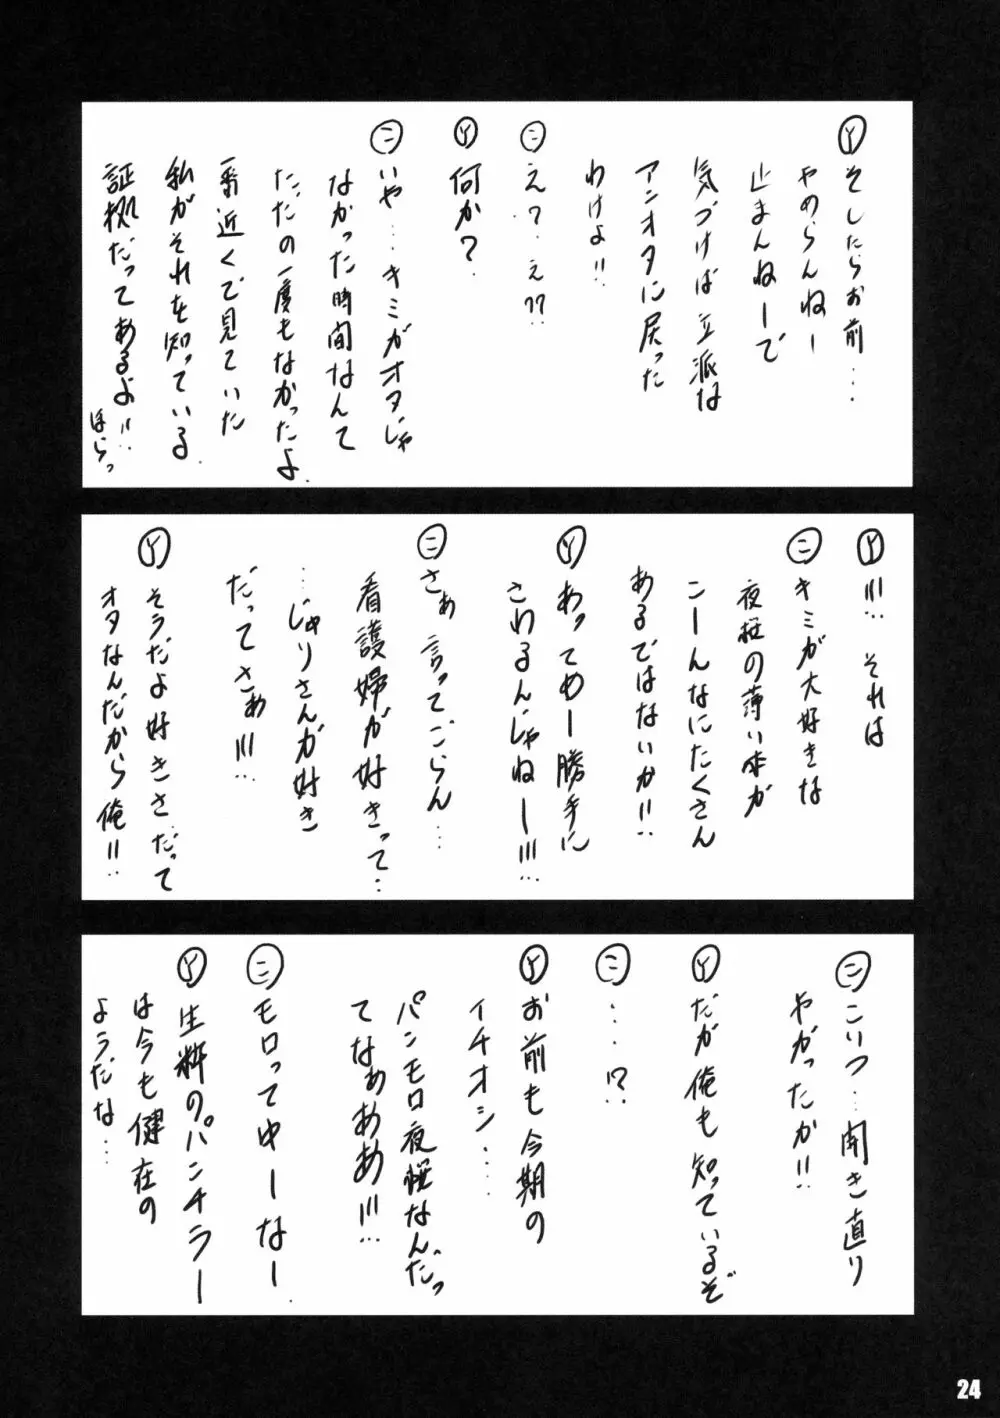 Ⓨそしたらお前…
やめらんねー
止まんねーで
気づけば立派な
アンオタに戻った
わけよ!!
㊁え?…え??
Ⓨ何か?
㊁いや…キミがオタじゃ
なかった時間なんて
ただの一度もなかったよ.
一番近くで見ていた
私がそれを知っている.
証拠だってあるよ!!…
ほらっ
Ⓨ!!!… それは
㊁キミが大好きな
夜桜の薄い本が
こーんなにたくさん
あるではないか!!…
Ⓨあってめー勝手に
さわるんじゃねー!!!…
㊁さぁ 言ってごらん…
看護婦が好きって…
…じゅりさんが好き
だってさぁ!!!…
Ⓨそうだよ好きさ…だって
オタなんだから俺!!…
㊁こいつ…開き直り
やがったか!!…
Ⓨだが俺も知っているぞ
㊁……!?
Ⓨお前も今期の
イチオシ……
パンモロ夜桜なんだっ
てなぁああ!!!…
㊁モロってゆーなー.
Ⓨ生粋のパンチラー
は今も健在の
ようだな…
24